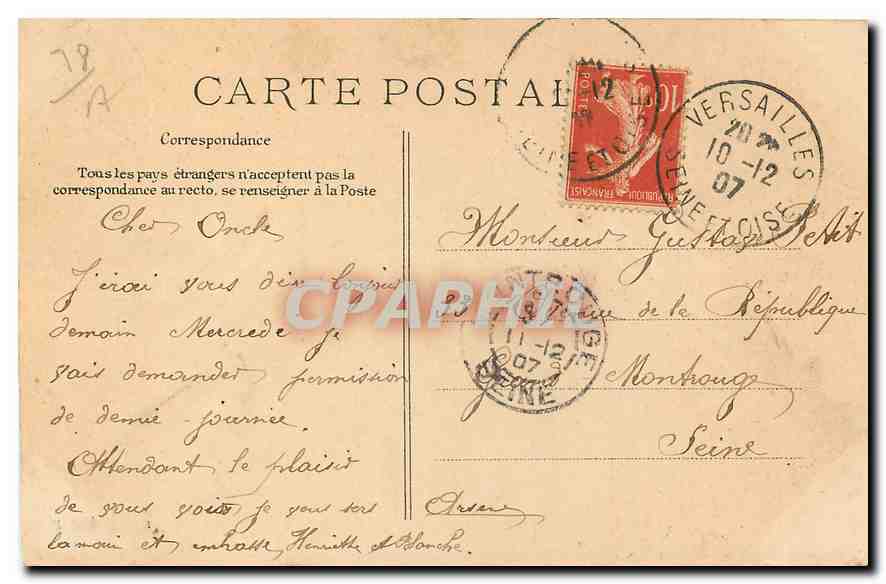 78
A
CARTE POSTALE
Correspondance
Tous les pays étrangers n'acceptent pas la
correspondance au recto, se renseigner à la Poste
Cher Oncle
J'irai vous dire bonjour
demain Mercredi je
vais demander permission
de demie-journée.
Attendant le plaisir
de vous voir je vous sers
la main et embrasse Henriette et Blanche.
Arsène
10
POSTES
REPUBLIQUE FRANÇAISE
12
SEINE ET OISE
VERSAILLES
20
10-12
07
SEINE ET OISE
Monsieur Gustave Petit
33 Avenue de la République
Grand
Montrouge
Seine
MONTROUGE
11-12
07
SEINE
CPAPHIL